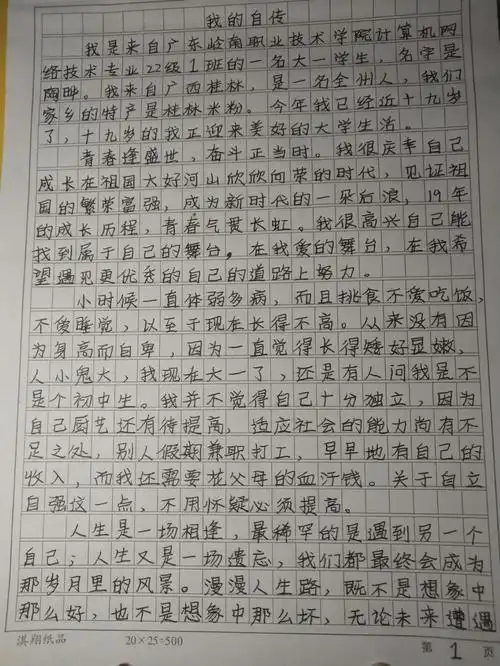 我的自传
我是来自广东岭南职业技术学院计算机网
络技术专业22级1班的一名大一学生，名字是
陶晔。我来自广西桂林，是一名全州人，我们
家乡的特产是桂林米粉。今年我已经近十九岁
了，十九岁的我正迎来美好的大学生活。
青春逢盛世，奋斗正当时。我很庆幸自己
成长在祖国大好河山欣欣向荣的时代，见证祖
国的繁荣富强，成为新时代的一朵后浪，19年
的成长历程，青春气贯长虹。我很高兴自己能
找到属于自己的舞台，在我爱的舞台，在我希
望遇见更优秀的自己的道路上努力。
小时候一直体弱多病，而且挑食不爱吃饭，
不爱睡觉，以至于现在长得不高。从来没有因
为身高而自卑，因为一直觉得长得矮好显嫩，
人小鬼大，我现在大一了，还是有人问我是不
是个初中生。我并不觉得自己十分独立，因为
自己厨艺还有待提高，适应社会的能力尚有不
足之处，别人假期兼职打工，早早地有自己的
收入，而我还需要花父母的血汗钱。关于自立
自强这一点，不用怀疑必须提高。
人生是一场相逢，最稀罕的是遇到另一个
自己；人生又是一场遗忘，我们都最终会成为
那岁月里的风景。漫漫人生路，既不是想象中
那么好，也不是想象中那么坏，无论未来遭遇
淇翔纸品 20×25=500 第 1 页